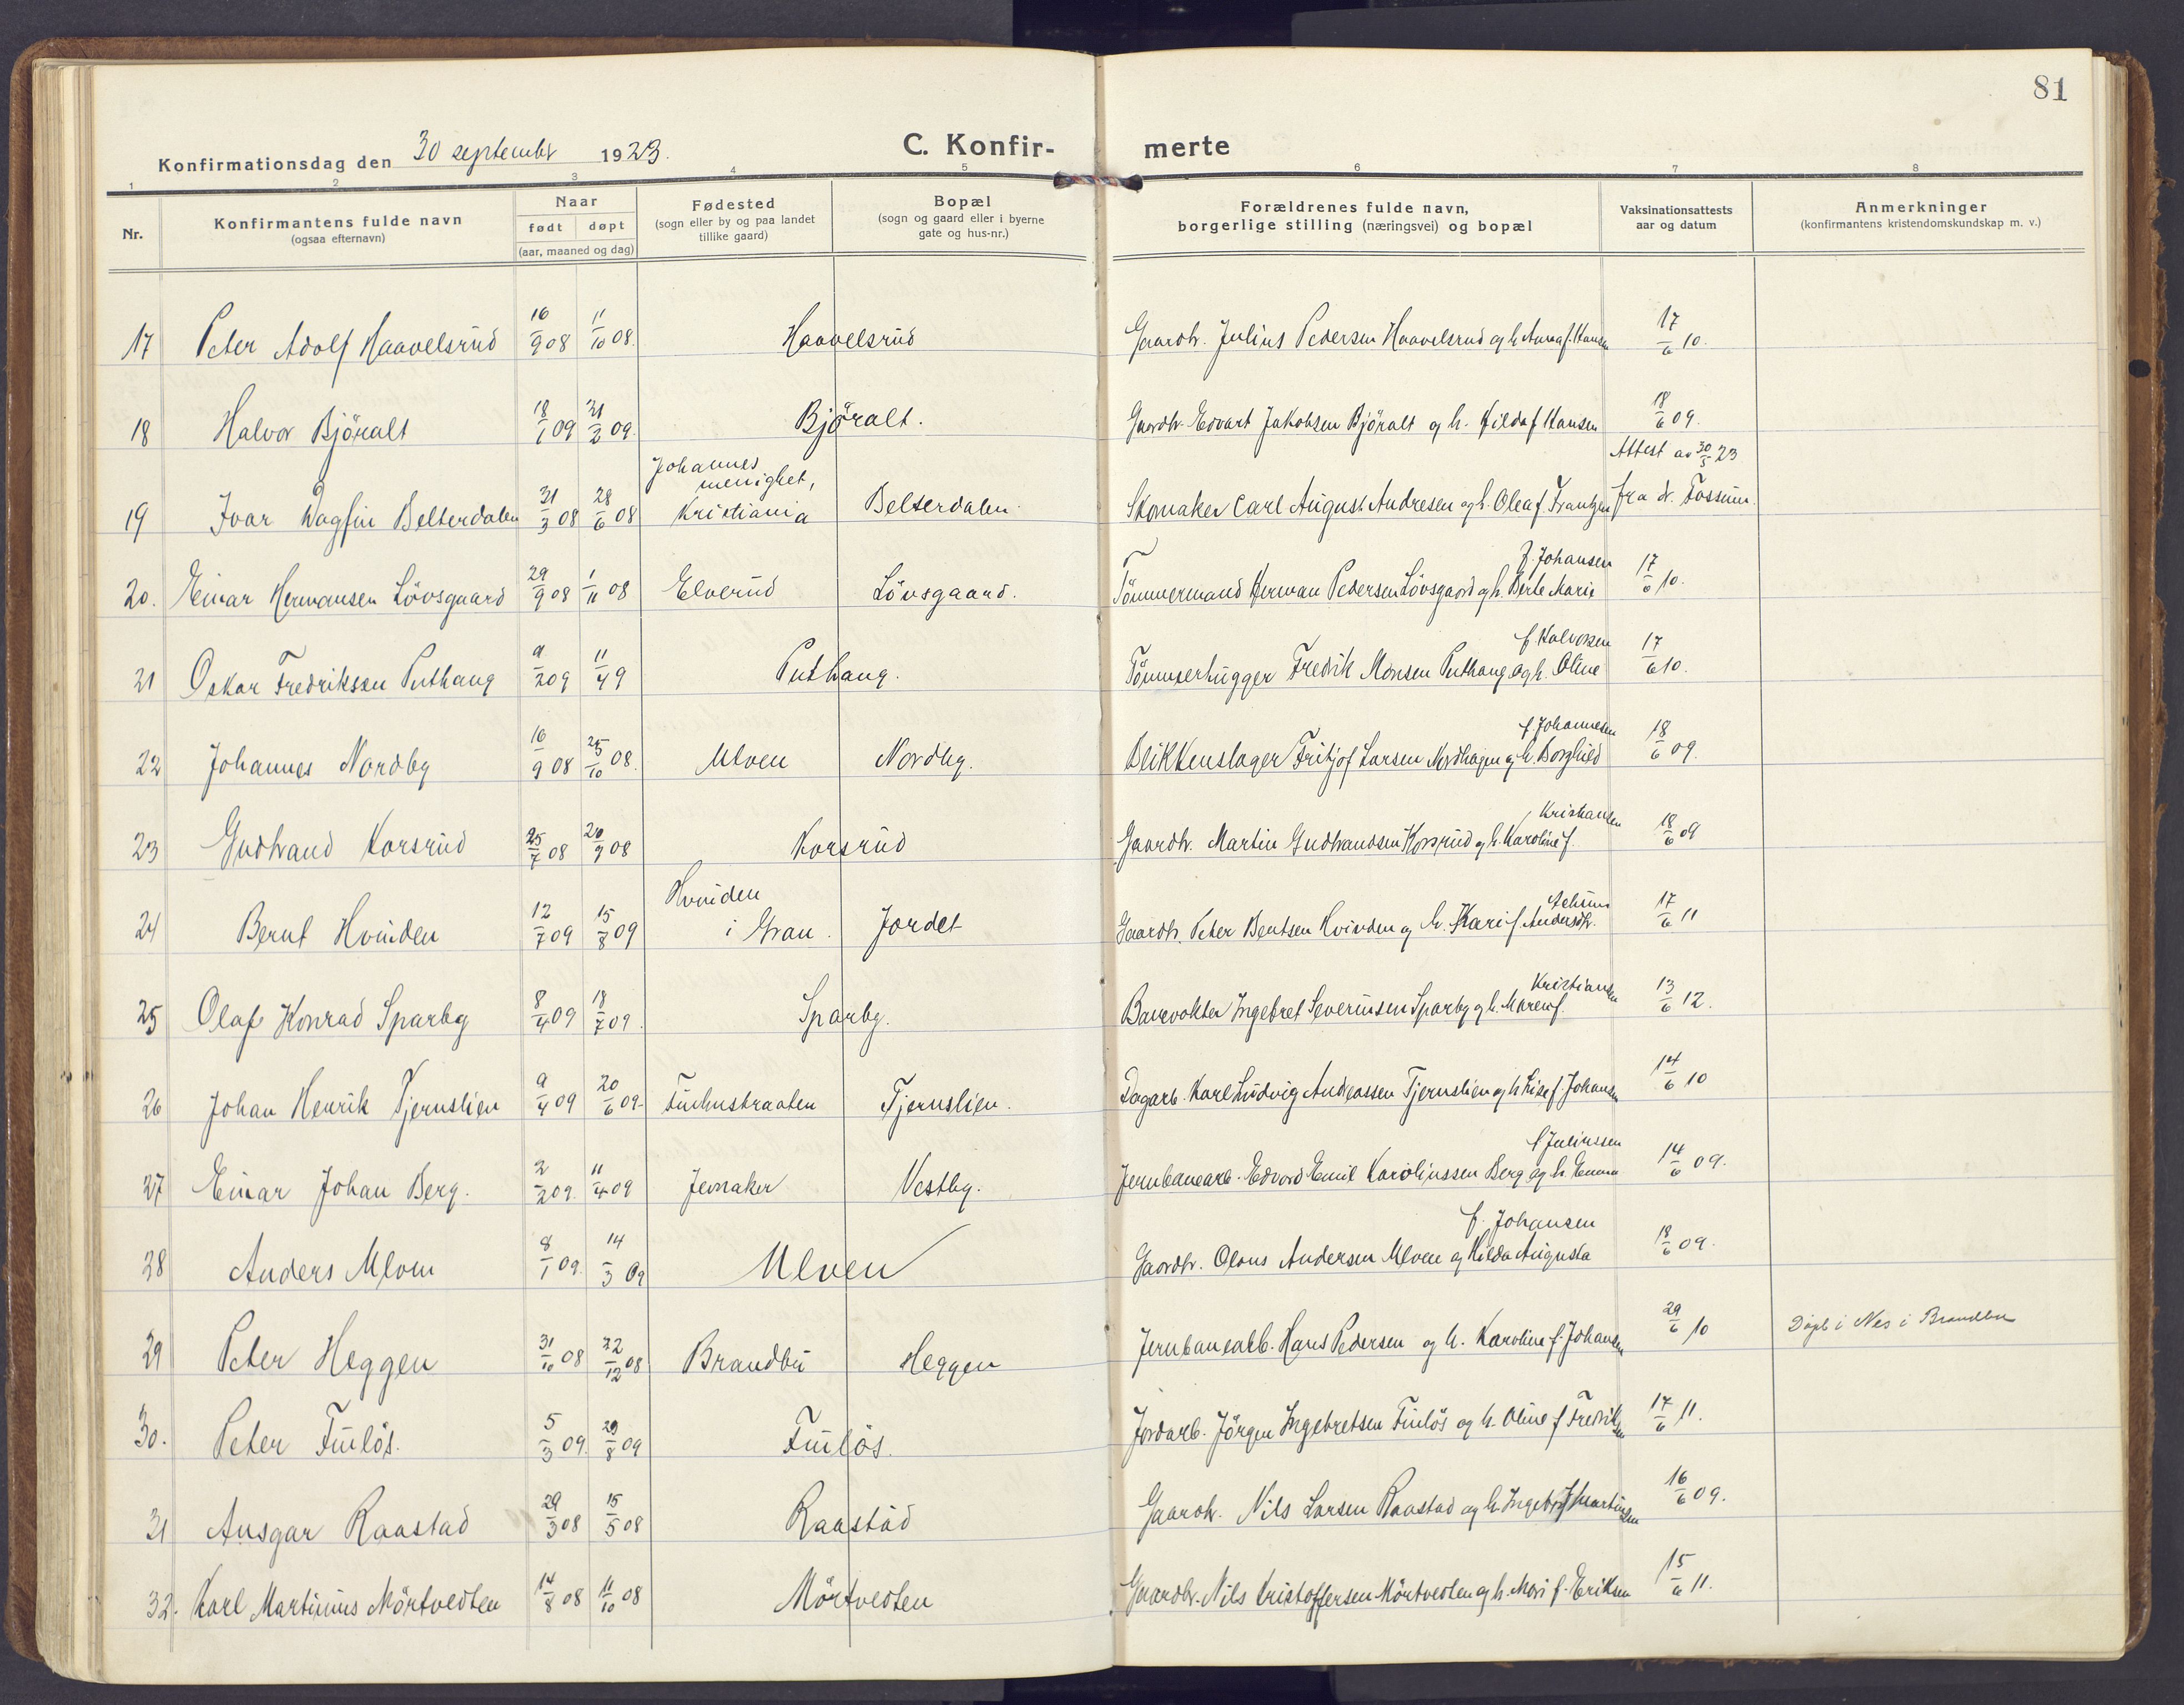 81
Konfirmationsdag den 30 septembr 1923.
C. Konfir-merte
1 2 3 4 5 6 7 8
Nr.
Konfirmantens fulde navn
(ogsaa efternavn)
Naar
født døpt
(aar, maaned og dag)
Fødested
(sogn eller by og paa landet
tillike gaard)
Bopæl
(sogn og gaard eller i byerne
gate og hus-nr.)
Forældrenes fulde navn,
borgerlige stilling (næringsvei) og bopæl
Vaksinationsattests
aar og datum
Anmerkninger
(konfirmantens kristendomskundskap m. v.)
17 Peter Adolf Haavelsrud 16/9 08 11/10 08. Haavelsrud Gaardbr. Julius Pedersen Haavelsrud og h. Anna f. Hansen 17/6 10.
18 Halvor Björalt 18/1 09 21/2 09. Björalt. Gaardbr. Edvart Jakobsen Björalt og h. Hilda f Hansen 18/6 09.
Johannes menighet, Attest av 30/5 23
19 Ivar Dagfin Belterdalen 31/3 08 28/6 08 Kristiania Belterdalen. Skomaker Carl August Andresen og h. Olea f. Frantzen fra dr. Fossum.
f. Johansen
20. Einar Hermansen Lövsgaard 29/9 08 1/11 08 Elverud Lövsgaard. Tömmermand Herman Pedersen Lövsgaard og h. Berte Marie 17/6 10.
f Halvorsen
21 Oskar Fredrikssen Puthaug 9/2 09 11/4 9 Puthaug. Tömmerhugger Fredrik Monsen Puthaug og h. Oline 17/6 10.
f Johannesen
22 Johannes Nordby 16/9 08 25/10 08. Ulven Nordby. Blikkenslager Fritjof Larsen Nordhagen og h. Borghild 18/6 09.
Kristiansen
23 Gudbrand Korsrud 25/7 08 20/9 08 Korsrud Gaardbr. Martin Gudbrandsen Korsrud og h. Karoline f. 18/6 09
24 Bernt Hvinden 12/7 09 15/8 09 Hvinden i Gran. Jordet Gaardbr. Peter Bentsen Hvinden og h. Kari f. Andersdtr. 17/6 11
Kristiansen
25 Olaf Konrad Sparby 8/4 09 18/7 09. Sparby. Banevokter Ingebret Severinsen Sparby og h. Maren f. 13/6 12.
26 Johan Henrik Tjernslien 9/4 09 20/6 09. Finhustraaten Tjernslien. Dagarb. Karl Ludvig Andreassen Tjernslien og h Lise f. Johansen 14/6 10
f Juliussen
27 Einar Johan Berg. 2/2 09. 11/4 09 Jevnaker Vestby. Jernbanearb. Edvard Emil Karolinssen Berg og h. Emma 14/6 09.
f. Johansen
28 Anders Ulven 8/1 09. 14/3 09 Ulven Gaardbr. Olaus Andersen Ulven og Hilda Augusta 18/6 09.
29 Peter Heggen 31/10 08 22/12 08 Brandbu Heggen Jernbanearb. Hans Pedersen og h. Karoline f. Johansen 29/6 10 Döpt i Nes i Brandbu
30. Peter Finlös. 5/3 09. 29/8 09 Finlös. Jordarb. Jörgen Ingebretsen Finlös og h. Oline f Fredriksen 17/6 11.
31 Ansgar Raastad 29/3 08 15/5 08 Raastad Gaardbr. Nils Larsen Raastad og h. Ingeborg f Martinsen 16/6 09.
32. Karl Martinius Mörtvedten 14/8 08 11/10 08 Mörtvedten Gaardbr. Nils Kristoffersen Mörtvedten og h. Mari f. Eriksen 15/6 11.